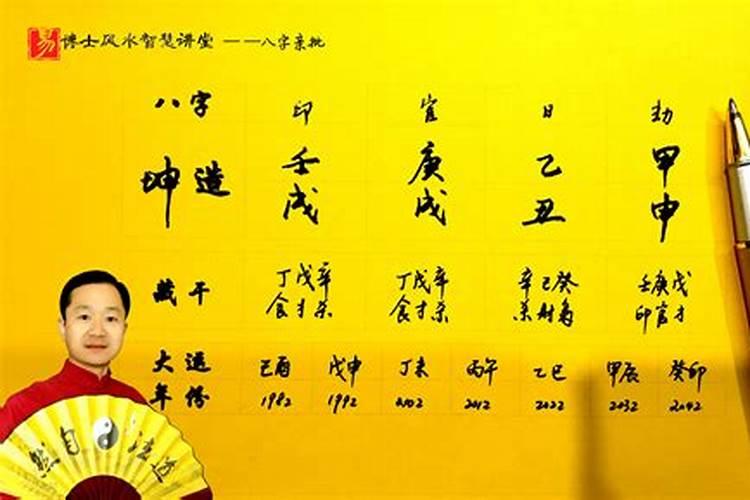 易 博士风水智慧讲堂 ——八字亲批
八字 印 官 日 劫
坤造 壬戌 庚戌 乙丑 甲申
藏干 丁戊辛 丁戊辛 辛己癸 壬庚戊
食才杀 食才杀 杀财枭 印官才
大运 己酉 戊申 丁未 丙午 乙巳 甲辰 癸卯
年份 1982 1992 2002 2012 2022 2032 2042
道法自然